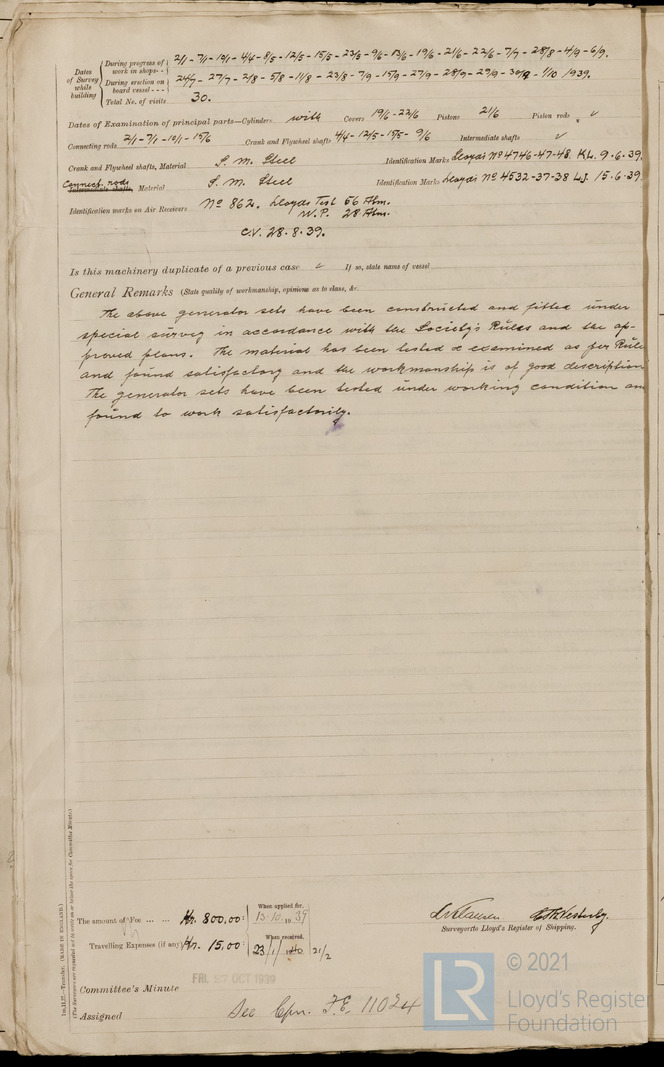 Dates of Survey while building
During progress of work in shops - - 2/1 - 7/1 - 10/1 - 4/4 - 8/5 - 12/5 - 15/5 - 23/5 - 9/6 - 13/6 - 19/6 - 21/6 - 22/6 - 7/9 - 28/8 - 4/9 - 6/9.
During erection on board vessel - - - 24/7 - 27/7 - 2/8 - 5/8 - 11/8 - 23/8 - 7/9 - 15/9 - 27/9 - 28/9 - 29/9 - 30/9 - 1/10 1939.
Total No. of visits 30.
Dates of Examination of principal parts—Cylinders with Covers 19/6 - 22/6 Pistons 21/6 Piston rods ✓
Connecting rods 2/1 - 7/1 - 10/1 - 15/6 Crank and Flywheel shafts 4/4 - 12/5 - 15/5 - 9/6 Intermediate shafts ✓
Crank and Flywheel shafts, Material S. M. Steel Identification Marks Lloyd's No 4746-47-48. KL. 9.6.39.
Connect. rods
Intermediate shafts, Material S. M. Steel Identification Marks Lloyd's No 4532-37-38 LJ. 15.6.39.
Identification marks on Air Receivers No 862. Lloyds Test 56 Atm.
W.P. 28 Atm.
C.V. 28.8.39.
Is this machinery duplicate of a previous case ✓ If so, state name of vessel
General Remarks (State quality of workmanship, opinions as to class, &c.
The above generator sets have been constructed and fitted under
special survey in accordance with the Society's Rules and the ap-
proved plans. The material has been tested & examined as per Rule
and found satisfactory and the workmanship is of good description
The generator sets have been tested under working condition an
found to work satisfactorily.
The amount of Fee ... ... Kr. 800,00: When applied for, 13.10.1939
Travelling Expenses (if any) Kr. 15,00: When received, 23/1/1940 21/2
Surveyors to Lloyd's Register of Shipping.
FRI. 27 OCT 1939
Committee's Minute
Assigned See Cpn. F.E. 11024
(MADE IN ENGLAND.)
(The Surveyors are requested not to write on or below the space for Committee Minute.)
LR
© 2021
Lloyd's Register
Foundation